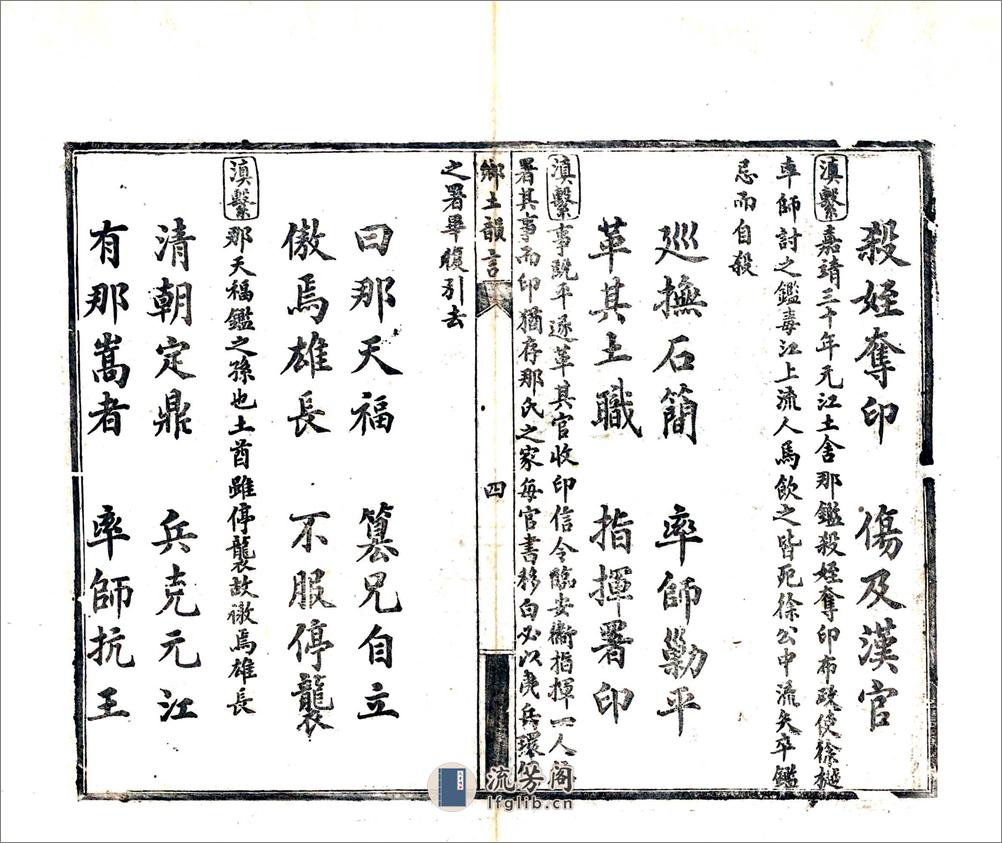 殺姪奪印　傷及漢官
滇繫嘉靖三十年元江土舍那鑑殺姪奪印布政使徐樾
率師討之鑑毒江上流人馬飲之皆死徐公中流矢卒鑑
忌而自殺
巡撫石簡　率師勦平
革其土職　指揮署印
滇繫事既平遂革其官收印信令臨安衞指揮一人
署其事而印猶存那氏之家每官書移白必以夷兵環
鄉土韻言
四
之署畢復引去
曰那天福　篡兄自立
傲焉雄長　不服停襲
滇繫那天福鑑之孫也土酋雖停襲故傲焉雄長
清朝定鼎　兵克元江
有那嵩者　率師抗王
流芳阁
lfglib.cn